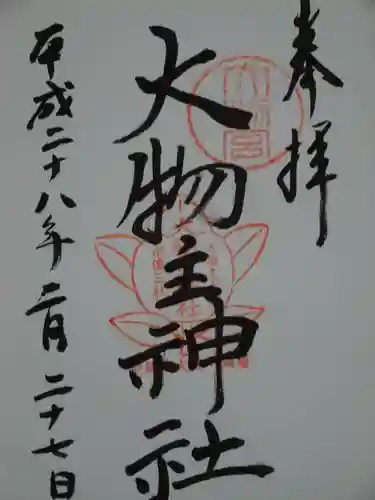 奉拝
大物主神社
平成二十八年二月二十七日